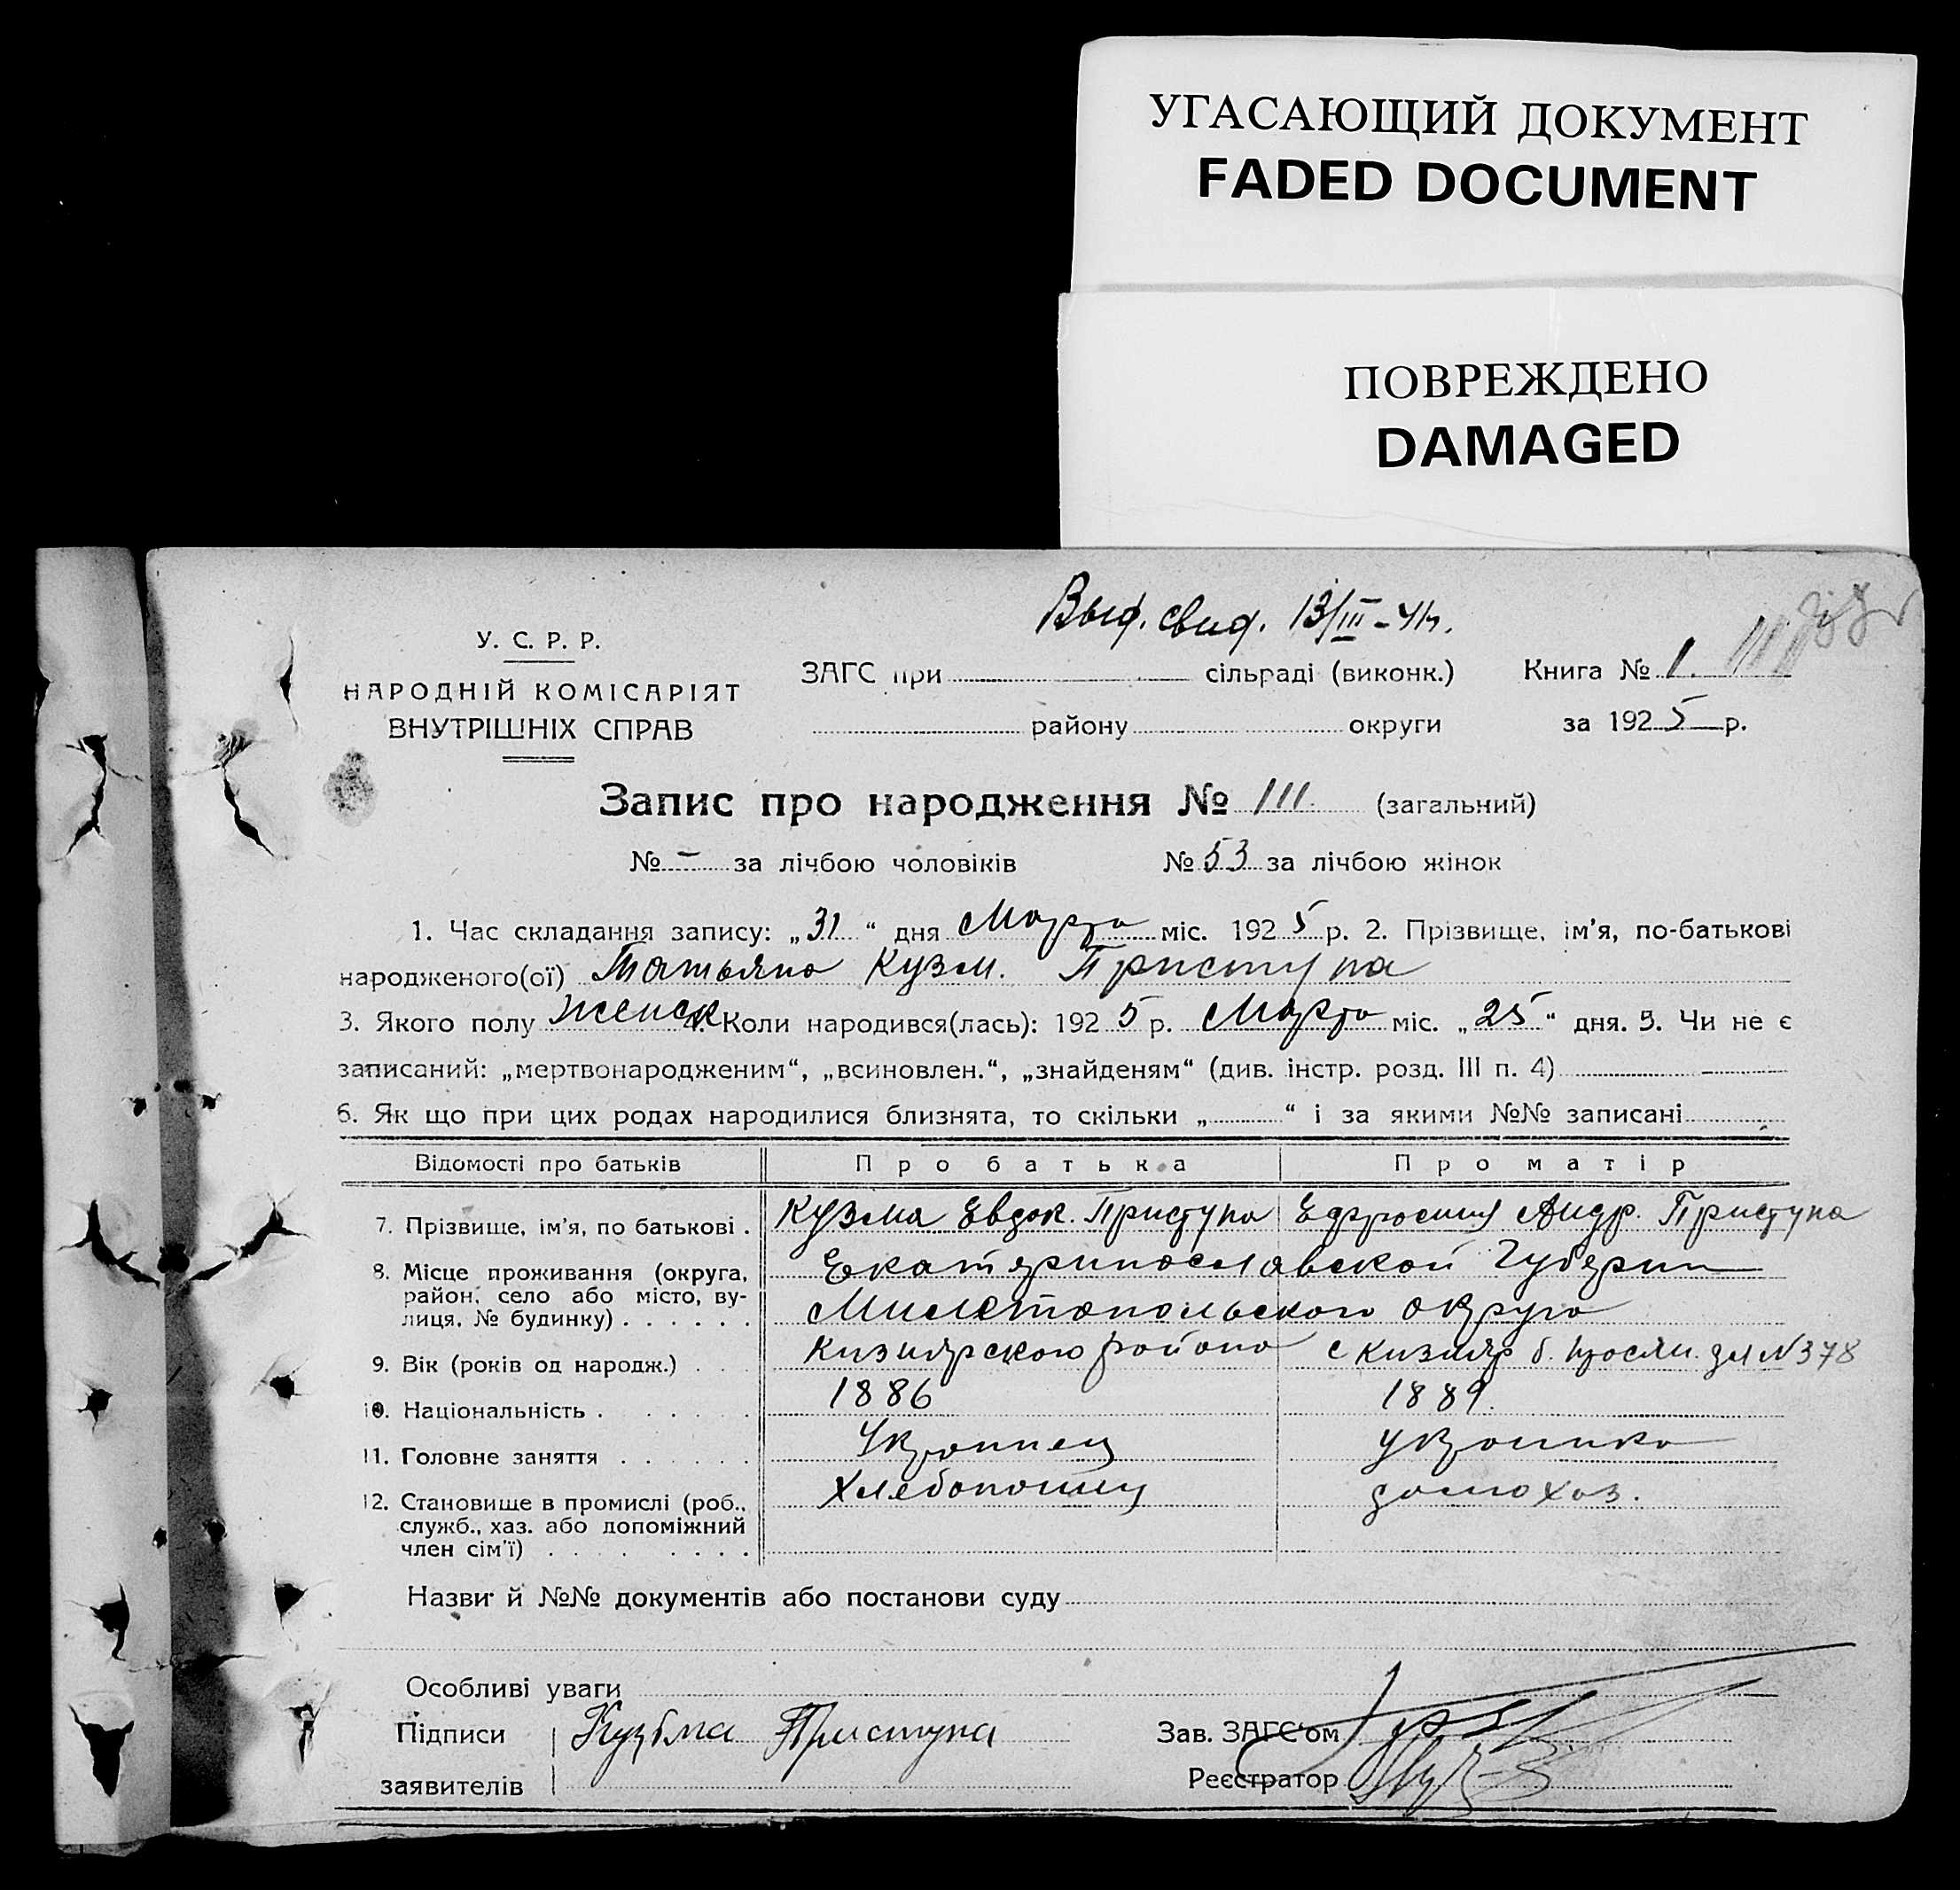 УГАСАЮЩИЙ ДОКУМЕНТ
FADED DOCUMENT
ПОВРЕЖДЕНО
DAMAGED
Выд. свид. 13/III-41г.
У. С. Р. Р.
НАРОДНІЙ КОМІСАРІЯТ
ВНУТРІШНІХ СПРАВ
ЗАГС при сільраді (виконк.)
району округи
Книга № 1. 111
за 1925 р.
Запис про народження № 111 (загальний)
№ - за лічбою чоловіків № 53 за лічбою жінок
1. Час складання запису: „31“ дня Марта міс. 1925 р. 2. Прізвище, ім’я, по-батькові
народженого(ої) Татьяна Кузм. Приступа
3. Якого полу женск Коли народився(лась): 1925 р. Марта міс. „25“ дня. 5. Чи не є
записаний: „мертвонародженим“, „всиновлен.“, „знайденям“ (див. інстр. розд. III п. 4)
6. Як що при цих родах народилися близнята, то скільки „ “ і за якими №№ записані
Відомості про батьків Про батька Про матір
7. Прізвище, ім’я, по батькові . Кузма Евдок. Приступа Ефросиния Андр. Приступа
8. Місце проживання (округа, район, село або місто, ву-
лиця, № будинку) . . . . . .
Екатеринославской Губернии
Мелетопольского округа
9. Вік (років од народж.) . . Кизиярского района с Кизияр дм №378
10. Національність . . . . . 1886 1889.
11. Головне заняття . . . . . . Украинец украинка
12. Становище в промислі (роб., служб., хаз. або допоміжний
член сім’ї) . . . . . . . .
Хлебопашец домохоз.
Назви й №№ документів або постанови суду
Особливі уваги
Підписи Кузьма Приступа Зав. ЗАГС‘ом
заявителів Реєстратор